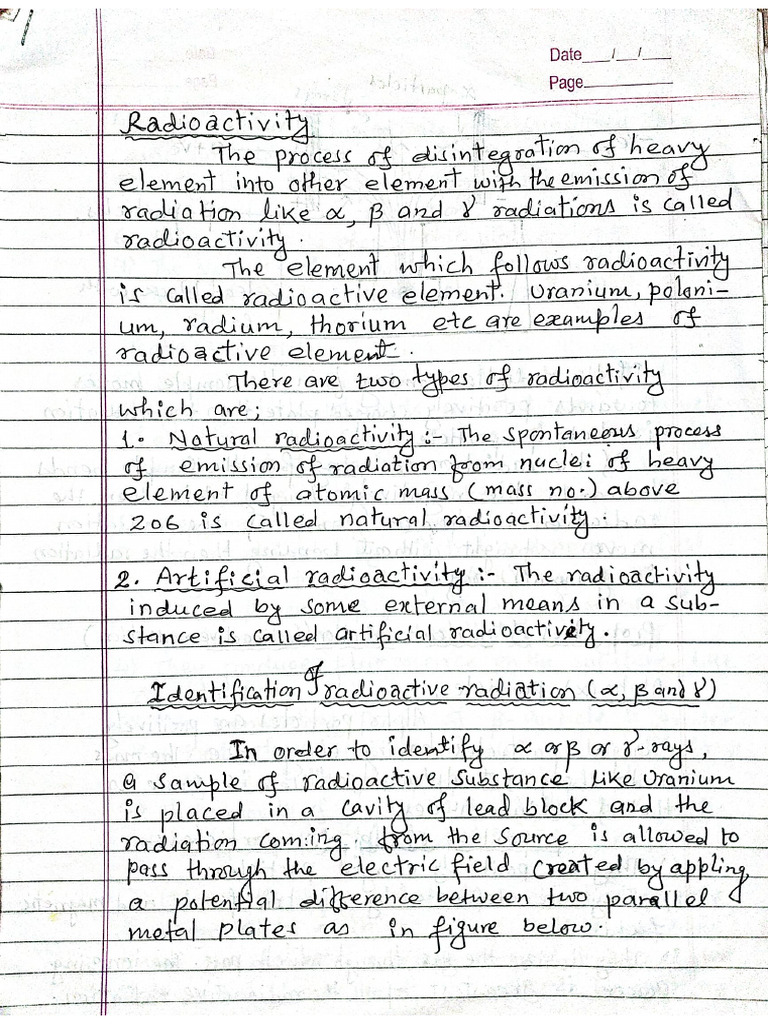 Date___/___/___
Page
Radioactivity
The process of disintegration of heavy
element into other element with the emission of
radiation like α, β and γ radiations is called
radioactivity.
The element which follows radioactivity
is called radioactive element. Uranium, poloni-
um, radium, thorium etc are examples of
radioactive element.
There are two types of radioactivity
which are;
1. Natural radioactivity :- The spontaneous process
of emission of radiation from nuclei of heavy
element of atomic mass (mass no.) above
206 is called natural radioactivity.
2. Artificial radioactivity :- The radioactivity
induced by some external means in a sub-
stance is called artificial radioactivity.
Identification of radioactive radiation (α, β and γ)
In order to identify α or β or γ-rays,
a sample of radioactive substance like Uranium
is placed in a cavity of lead block and the
radiation coming from the source is allowed to
pass through the electric field created by appling
a potential difference between two parallel
metal plates as in figure below.